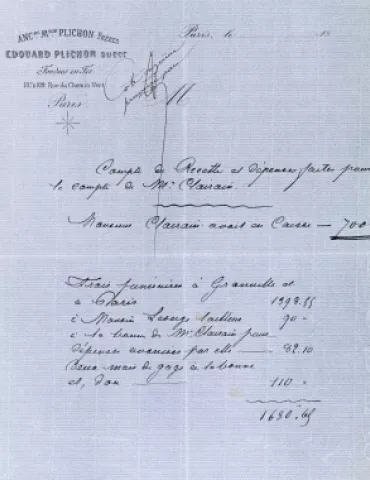 ANC.NE M.SON PLICHON FRÈRES
EDOUARD PLICHON SUCC.R
Fondeur en Fer
Rue du Chemin Vert
Paris
Paris, le 18
M
Compte de Recette et dépenses faites pour
le compte de Mr Clairain
Monsieur Clairain avait en Caisse — 700
Frais funéraires à Granville et
à Paris 1398.55
à Georges 90 -
à la bonne de Mr Clairain pour
dépenses avancées par elle — 82.10
Deux mois de gage à la bonne
et, don 110 -
1680.65